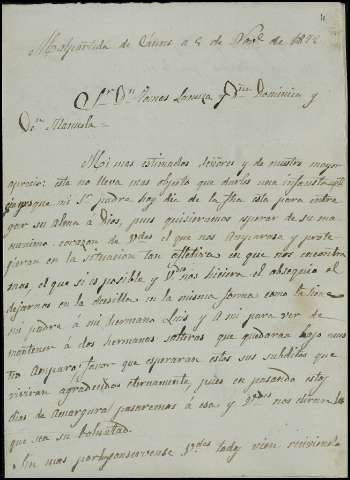 Malpartida de Cáceres a 5 de de 187
Sr. Dn. Ramos y Dña. Dominica y
Dña. Manuela
Mi mas estimados Señores y de nuestro mayor
aprecio: esta no lleva mas objeto que darles una infausta
porque mi Sr. padre hoy dia de la fha esta para entre
gar su alma á Dios, pues quisieramos esperar de su ma
nanimo corazon de Vdes el que nos Anparase y prote
jieran en la situacion tan en que nos encontra
mos, el que si es posible y Vdes nos hiciera el obsequio el
dejarnos en la en la misma forma como la tiene
mi padre á mi hermano Luis y A mi para ver de
mantener á dos hermanos solteras que quedaran bajo nues
tro Anparo: favor que esperaran estos sus subditos que
viviran agradecidos eternamente, pues en pasando estos
dias de Amargura pasaremos á esa y Vdes nos diran lo
que sea su boluntad.
Sin mas Vdes todos vien reciviendo